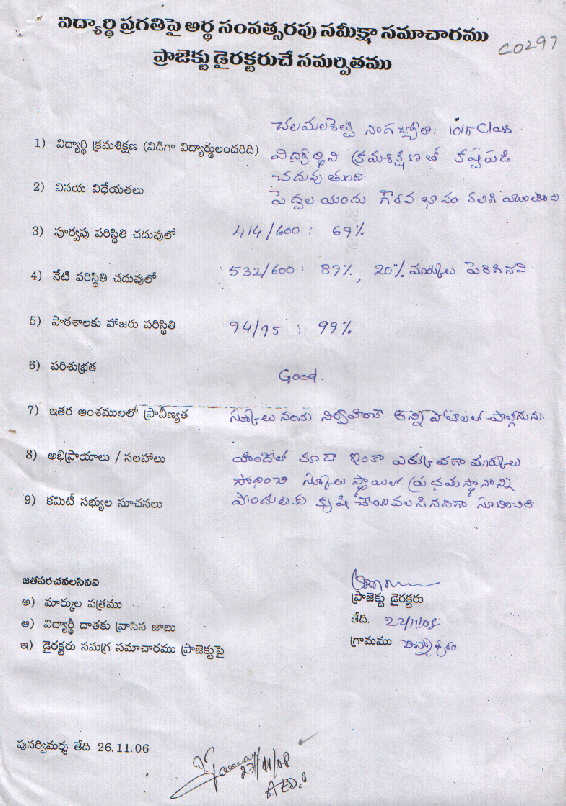 విద్యార్థి ప్రగతిపై అర్థ సంవత్సరపు సమీక్షా సమాచారము
ప్రాజెక్టు డైరక్టరుచే సమర్పితము
C0297
నాగజ్యోతి 10th Class
1) విద్యార్థి క్రమశిక్షణ (విడిగా విద్యార్థులందరిది)
విద్యార్థిని క్రమశిక్షణతో కష్టపడి
చదువుతుంది
2) వినయ విధేయతలు
పెద్దల యందు గౌరవ భావం కలిగి
3) పూర్వపు పరిస్థితి చదువులో 414/600 : 69%
4) నేటి పరిస్థితి చదువులో 532/600 : 89%, 20% మార్కులు పెరిగినవి
5) పాఠశాలకు హాజరు పరిస్థితి 94/95 : 99%
6) పరిశుభ్రత Good.
7) ఇతర అంశములలో ప్రావీణ్యత స్కూలు నందు నిర్వహించే అన్ని పోటీలలో పాల్గొనును
8) అభిప్రాయాలు / సలహాలు కూడా ఇంకా ఎక్కువగా మార్కులు
సాధించి స్కూలు స్థాయిలో ప్రథమస్థానాన్ని
9) కమిటీ సభ్యుల సూచనలు పొందుటకు కృషి చేయవలసినదిగా
జతపరచవలసినవి
అ) మార్కుల పత్రము
ఆ) విద్యార్థి దాతకు వ్రాసిన జాబు
ఇ) డైరక్టరు సమగ్ర సమాచారము ప్రాజెక్టుపై
ప్రాజెక్టు డైరక్టరు
తేది. 22/11/08
గ్రామము
పునర్విమర్శ తేది 26.11.06
27/11/08